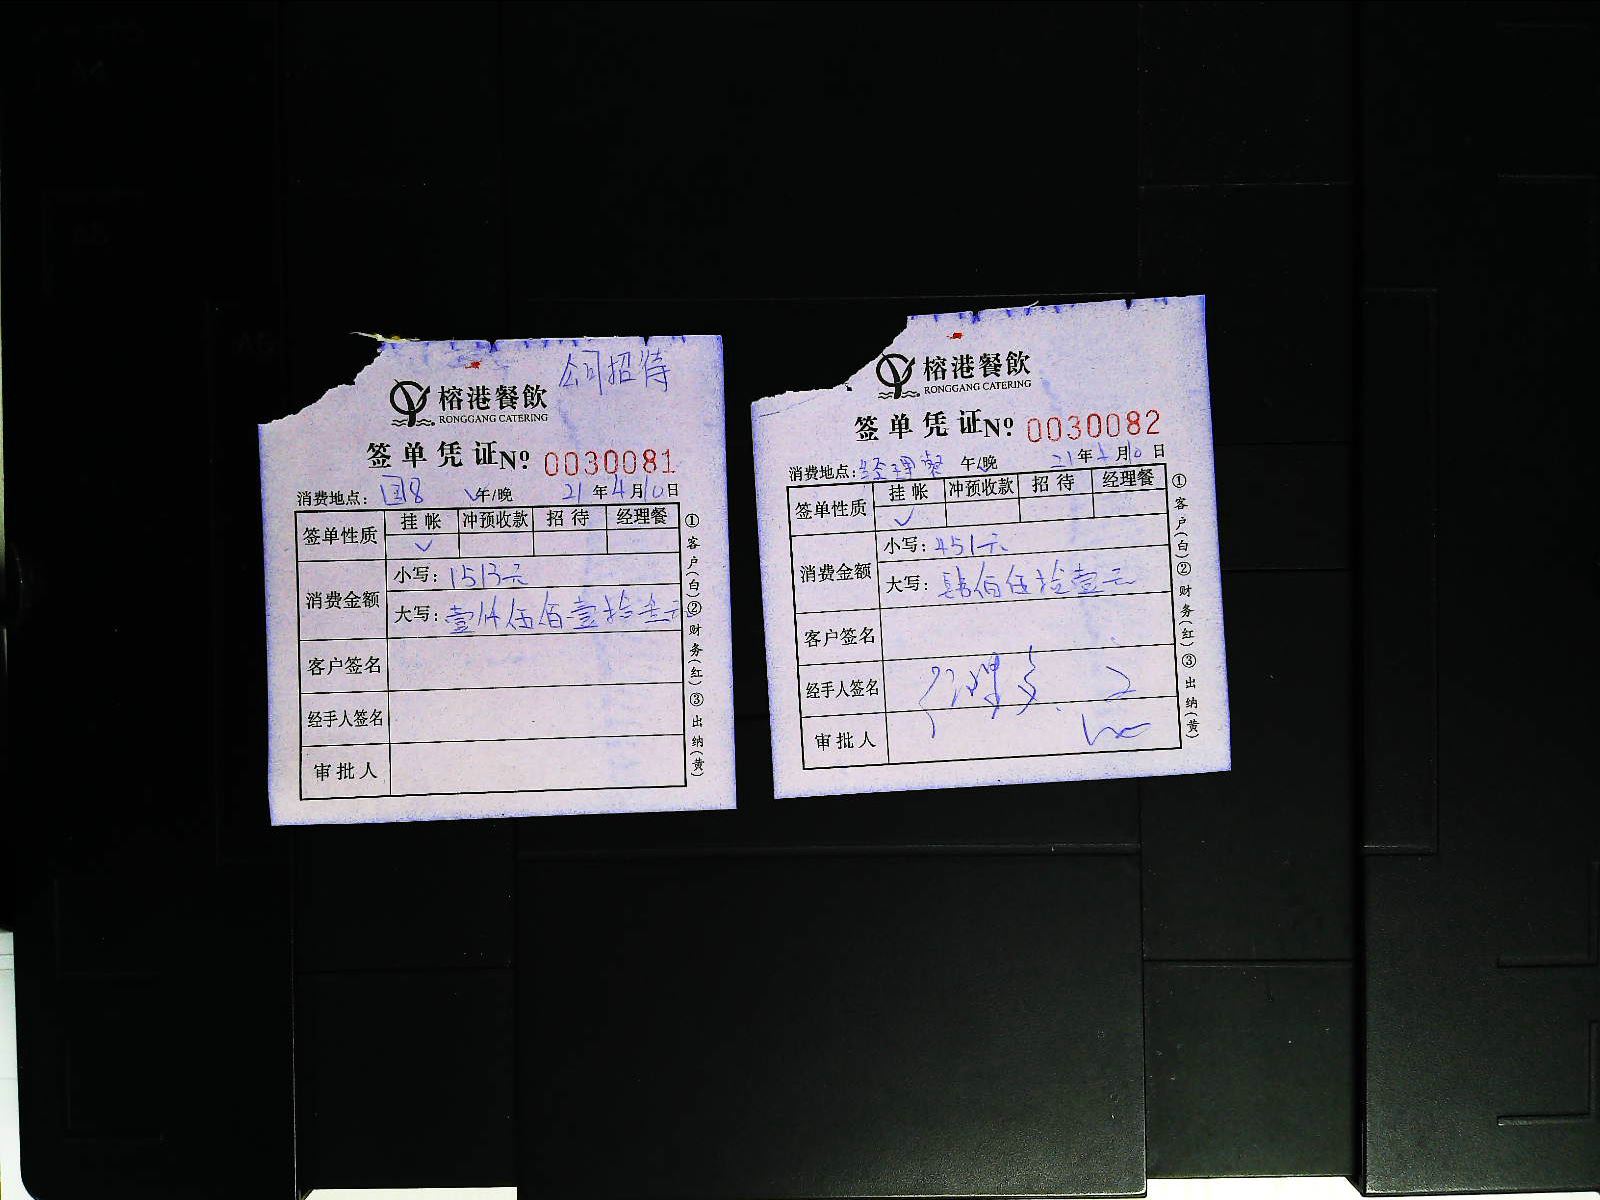 公司招待
榕港餐飲
RONGGANG CATERING
签单凭证№ 0030081
消费地点: 国8 √午/晚 21年4月10日
签单性质 挂帐 冲预收款 招待 经理餐
√
消费金额 小写: 1513元
大写: 壹仟伍佰壹拾叁元
客户签名
经手人签名
审批人
①客户(白)②财务(红)③出纳(黄)
榕港餐飲
RONGGANG CATERING
签单凭证№ 0030082
消费地点: 经理餐 午/晚 21年4月10日
签单性质 挂帐 冲预收款 招待 经理餐
√
消费金额 小写: 451元
大写: 肆佰伍拾壹元
客户签名
经手人签名
审批人
①客户(白)②财务(红)③出纳(黄)